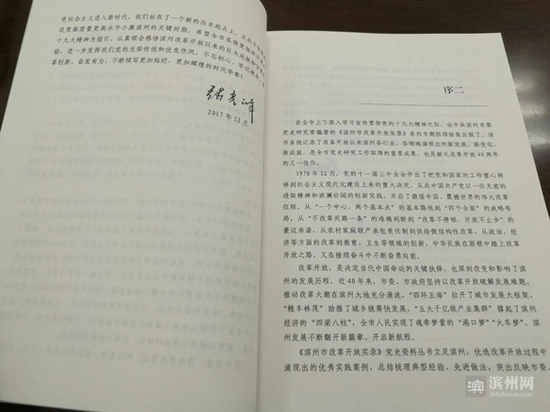 色社会主义进入新时代，我们站在了一个新的历史起点上，正处于
设更高质量更高水平小康滨州的关键时期。希望全市各级党组织
十九大精神为指引，认真领会感悟滨州改革开放以来的巨大成就和
验，进一步发扬我们党的光荣传统和优良作风，不忘初心，牢记使命
革创新、奋发有为，不断续写更加灿烂、更加辉煌的时代华章！
2017年12月
序二
在全市上下深入学习宣传贯彻党的十九大精神之际，由中共滨州市委
党史研究室编著的《滨州市改革开放实录》系列专题结辑结集出版了。该
书系统记录了改革开放以来滨州各行业、各领域涌现出的新发展、新变化、
新成就，是全市党史研究工作取得的重要成果，也是献礼改革开放40周年
的又一佳作。
1978年12月，党的十一届三中全会作出了把党和国家的工作重心转
移到社会主义现代化建设上来的重大决定，从此中国共产党以一往无前的
进取精神和波澜壮阔的创新实践，开启了激荡中国、震撼世界的伟大改革
征程。从“一个中心、两个基本点”的基本路线到“四个全面”的战略布
局，从“不改革死路一条”的准确判断到“改革不停顿、开放不止步”的
豪迈承诺，从农村家庭联产承包责任制到供给侧结构性改革，从政治、经
济等方面的改革到教育、卫生等领域的创新，中华民族在困顿中踏上改革
开放之路，又在接续奋斗中不断奋勇向前。
改革开放，是决定当代中国命运的关键抉择，也深刻改变和影响了滨
州的发展历程。近40年来，市委、市政府坚持以改革开放破解发展难题，
推动改革大潮在滨州大地充分涌流，“四环五海”拉开了城市发展大框架，
“粮丰林茂”助推了城乡统筹快发展，“五大千亿级产业集群”撑起了滨州
经济的“四梁八柱”，全市人民实现了魂牵梦萦的“港口梦”“火车梦”，滨州
发展不断翻开新篇章、开启新航程。
《滨州市改革开放实录》党史资料丛书立足滨州，优选改革开放过程中
涌现出的优秀实践案例，总结梳理典型经验、先进做法，突出反映市委、
滨州网
binzhouw.com